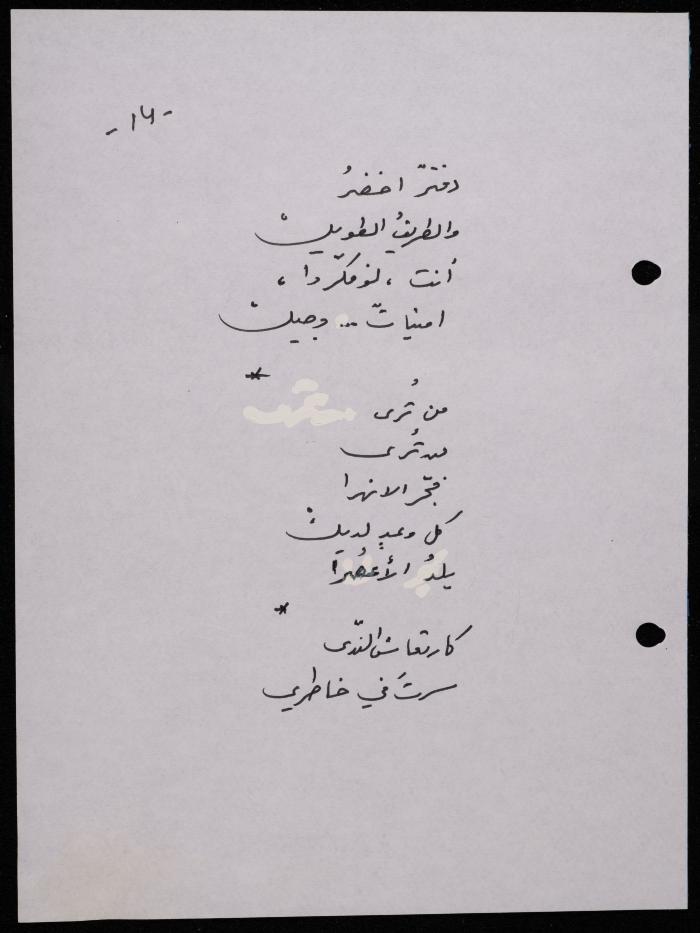 - ١٦ -
دفترٌ اخضرُ
والطريقُ الطويلْ
أنت ، لو فكّروا ،
امنياتٌ ... وجيلْ
*
من تُرى
من تُرى
فجّر الانهرا
كل وعدٍ لديكْ
يلدُ الأعصُرا
*
كارتعاش النّدى
سرتَ في خاطري